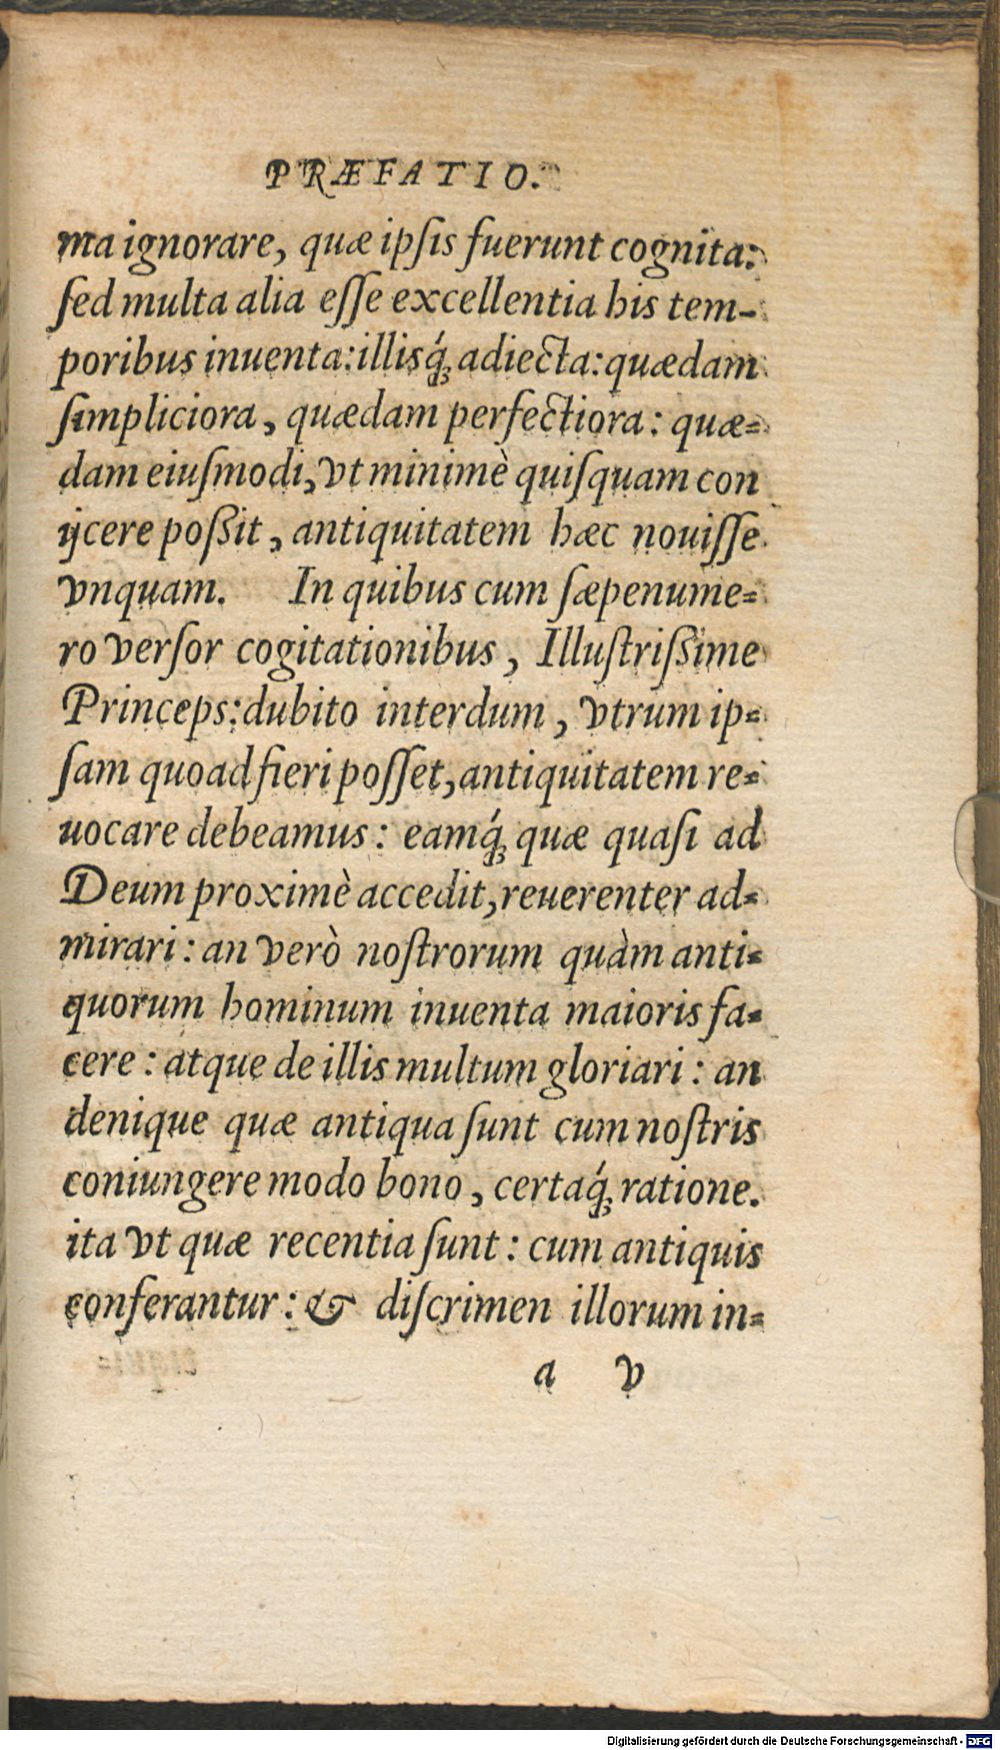 PRÆFATIO.
ma ignorare, quæ ipſis fuerunt cognita:
ſed multa alia eſſe excellentia his tem-
poribus inuenta: illisq́; adiecta: quædam
ſimpliciora, quædam perfectiora: quæ-
dam eiuſmodi, vt minimè quiſquam con
ijcere poßit, antiquitatem hæc nouiſſe
vnquam. In quibus cum ſæpenume-
ro verſor cogitationibus, Illuſtrißime
Princeps: dubito interdum, vtrum ip-
ſam quoad fieri poſſet, antiquitatem re-
uocare debeamus: eamq́; quæ quaſi ad
Deum proximè accedit, reuerenter ad-
mirari: an verò noſtrorum quàm anti-
quorum hominum inuenta maioris fa-
cere: atque de illis multum gloriari: an
denique quæ antiqua ſunt cum noſtris
coniungere modo bono, certaq́; ratione.
ita vt quæ recentia ſunt: cum antiquis
conferantur: & diſcrimen illorum in-
a v
Digitalisierung gefördert durch die Deutsche Forschungsgemeinschaft - DFG